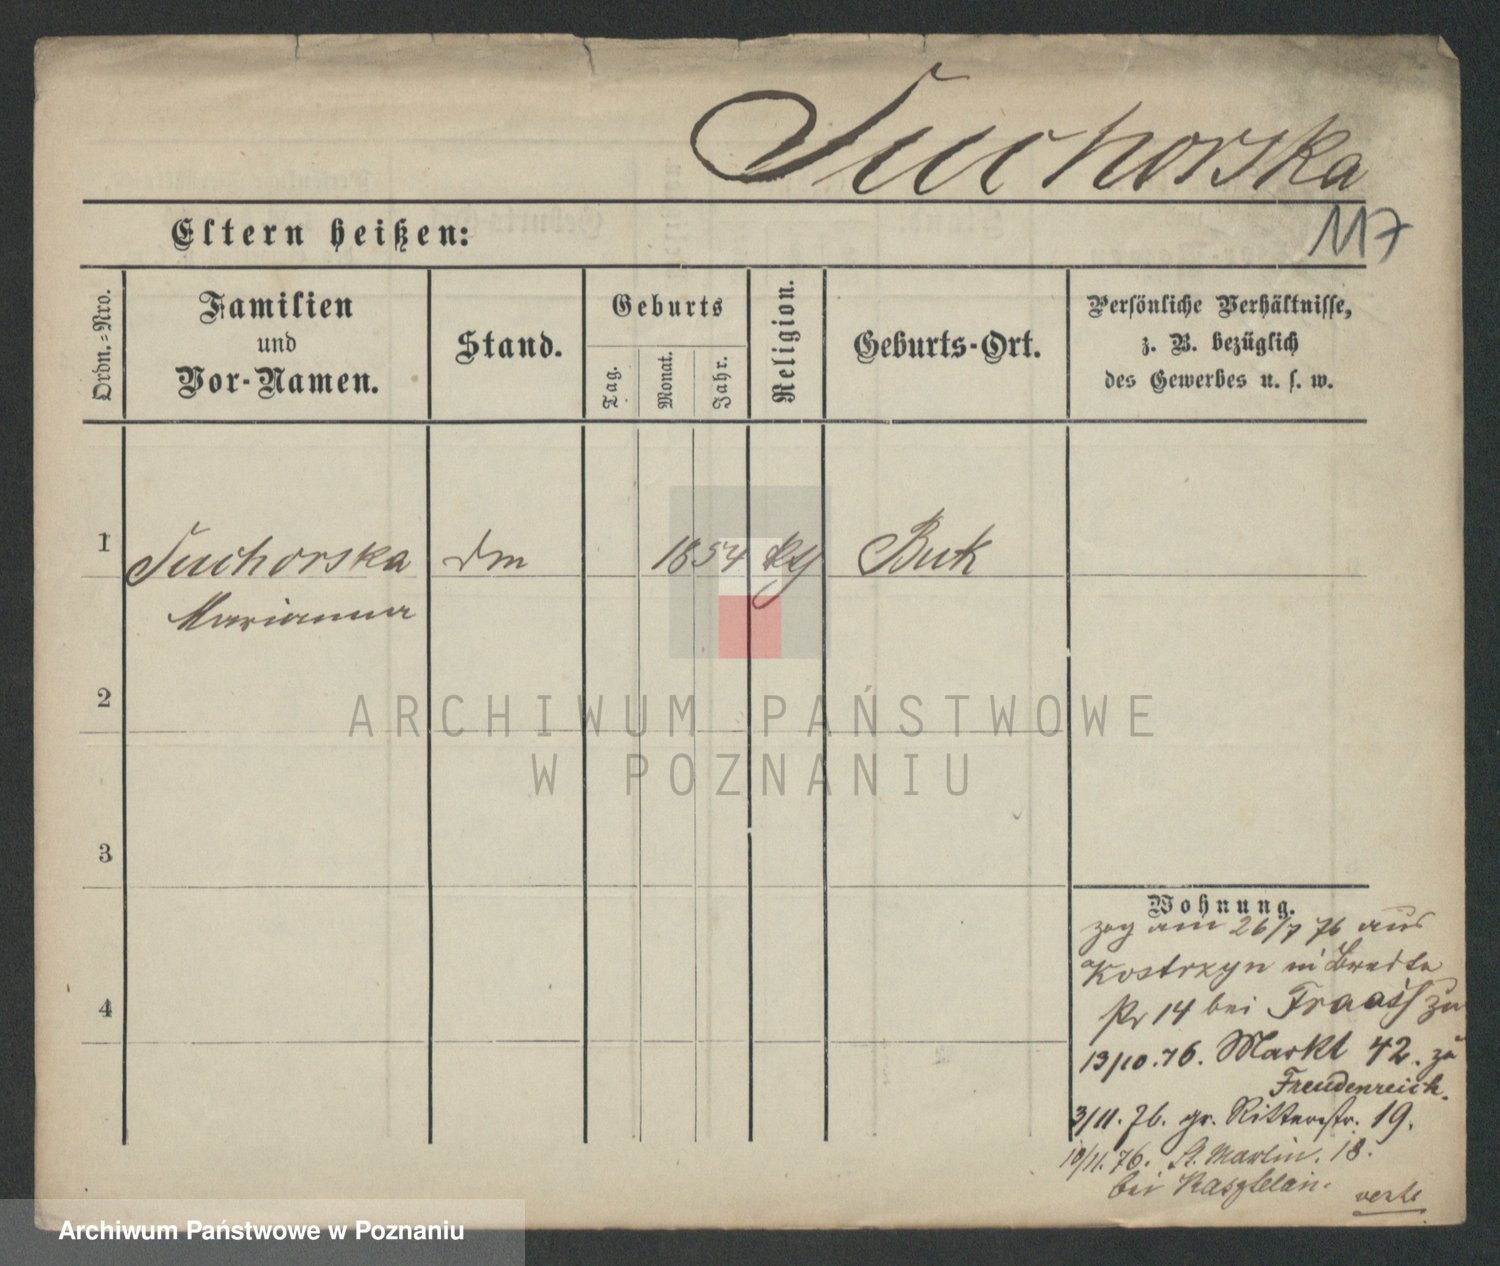 Suchorska
117
Eltern heißen:
Ordn.-Nro.
Familien
und
Vor-Namen.
Stand.
Geburts
Tag.
Monat.
Jahr.
Religion.
Geburts-Ort.
Persönliche Verhältnisse,
z. B. bezüglich
des Gewerbes u. s. w.
1 Suchorska 1854 Buk
Marianna
2
ARCHIWUM PAŃSTWOWE
W POZNANIU
3
Wohnung.
zog am 26/7 76 aus
Kostrzyn in
4
14 bei Fraass zu
13/10.76. Markt 42. zu
Freudenreich.
3/11.76. gr. Ritterstr. 19.
10/11.76. St. Martin. 18.
bei Kasztelan.
Archiwum Państwowe w Poznaniu